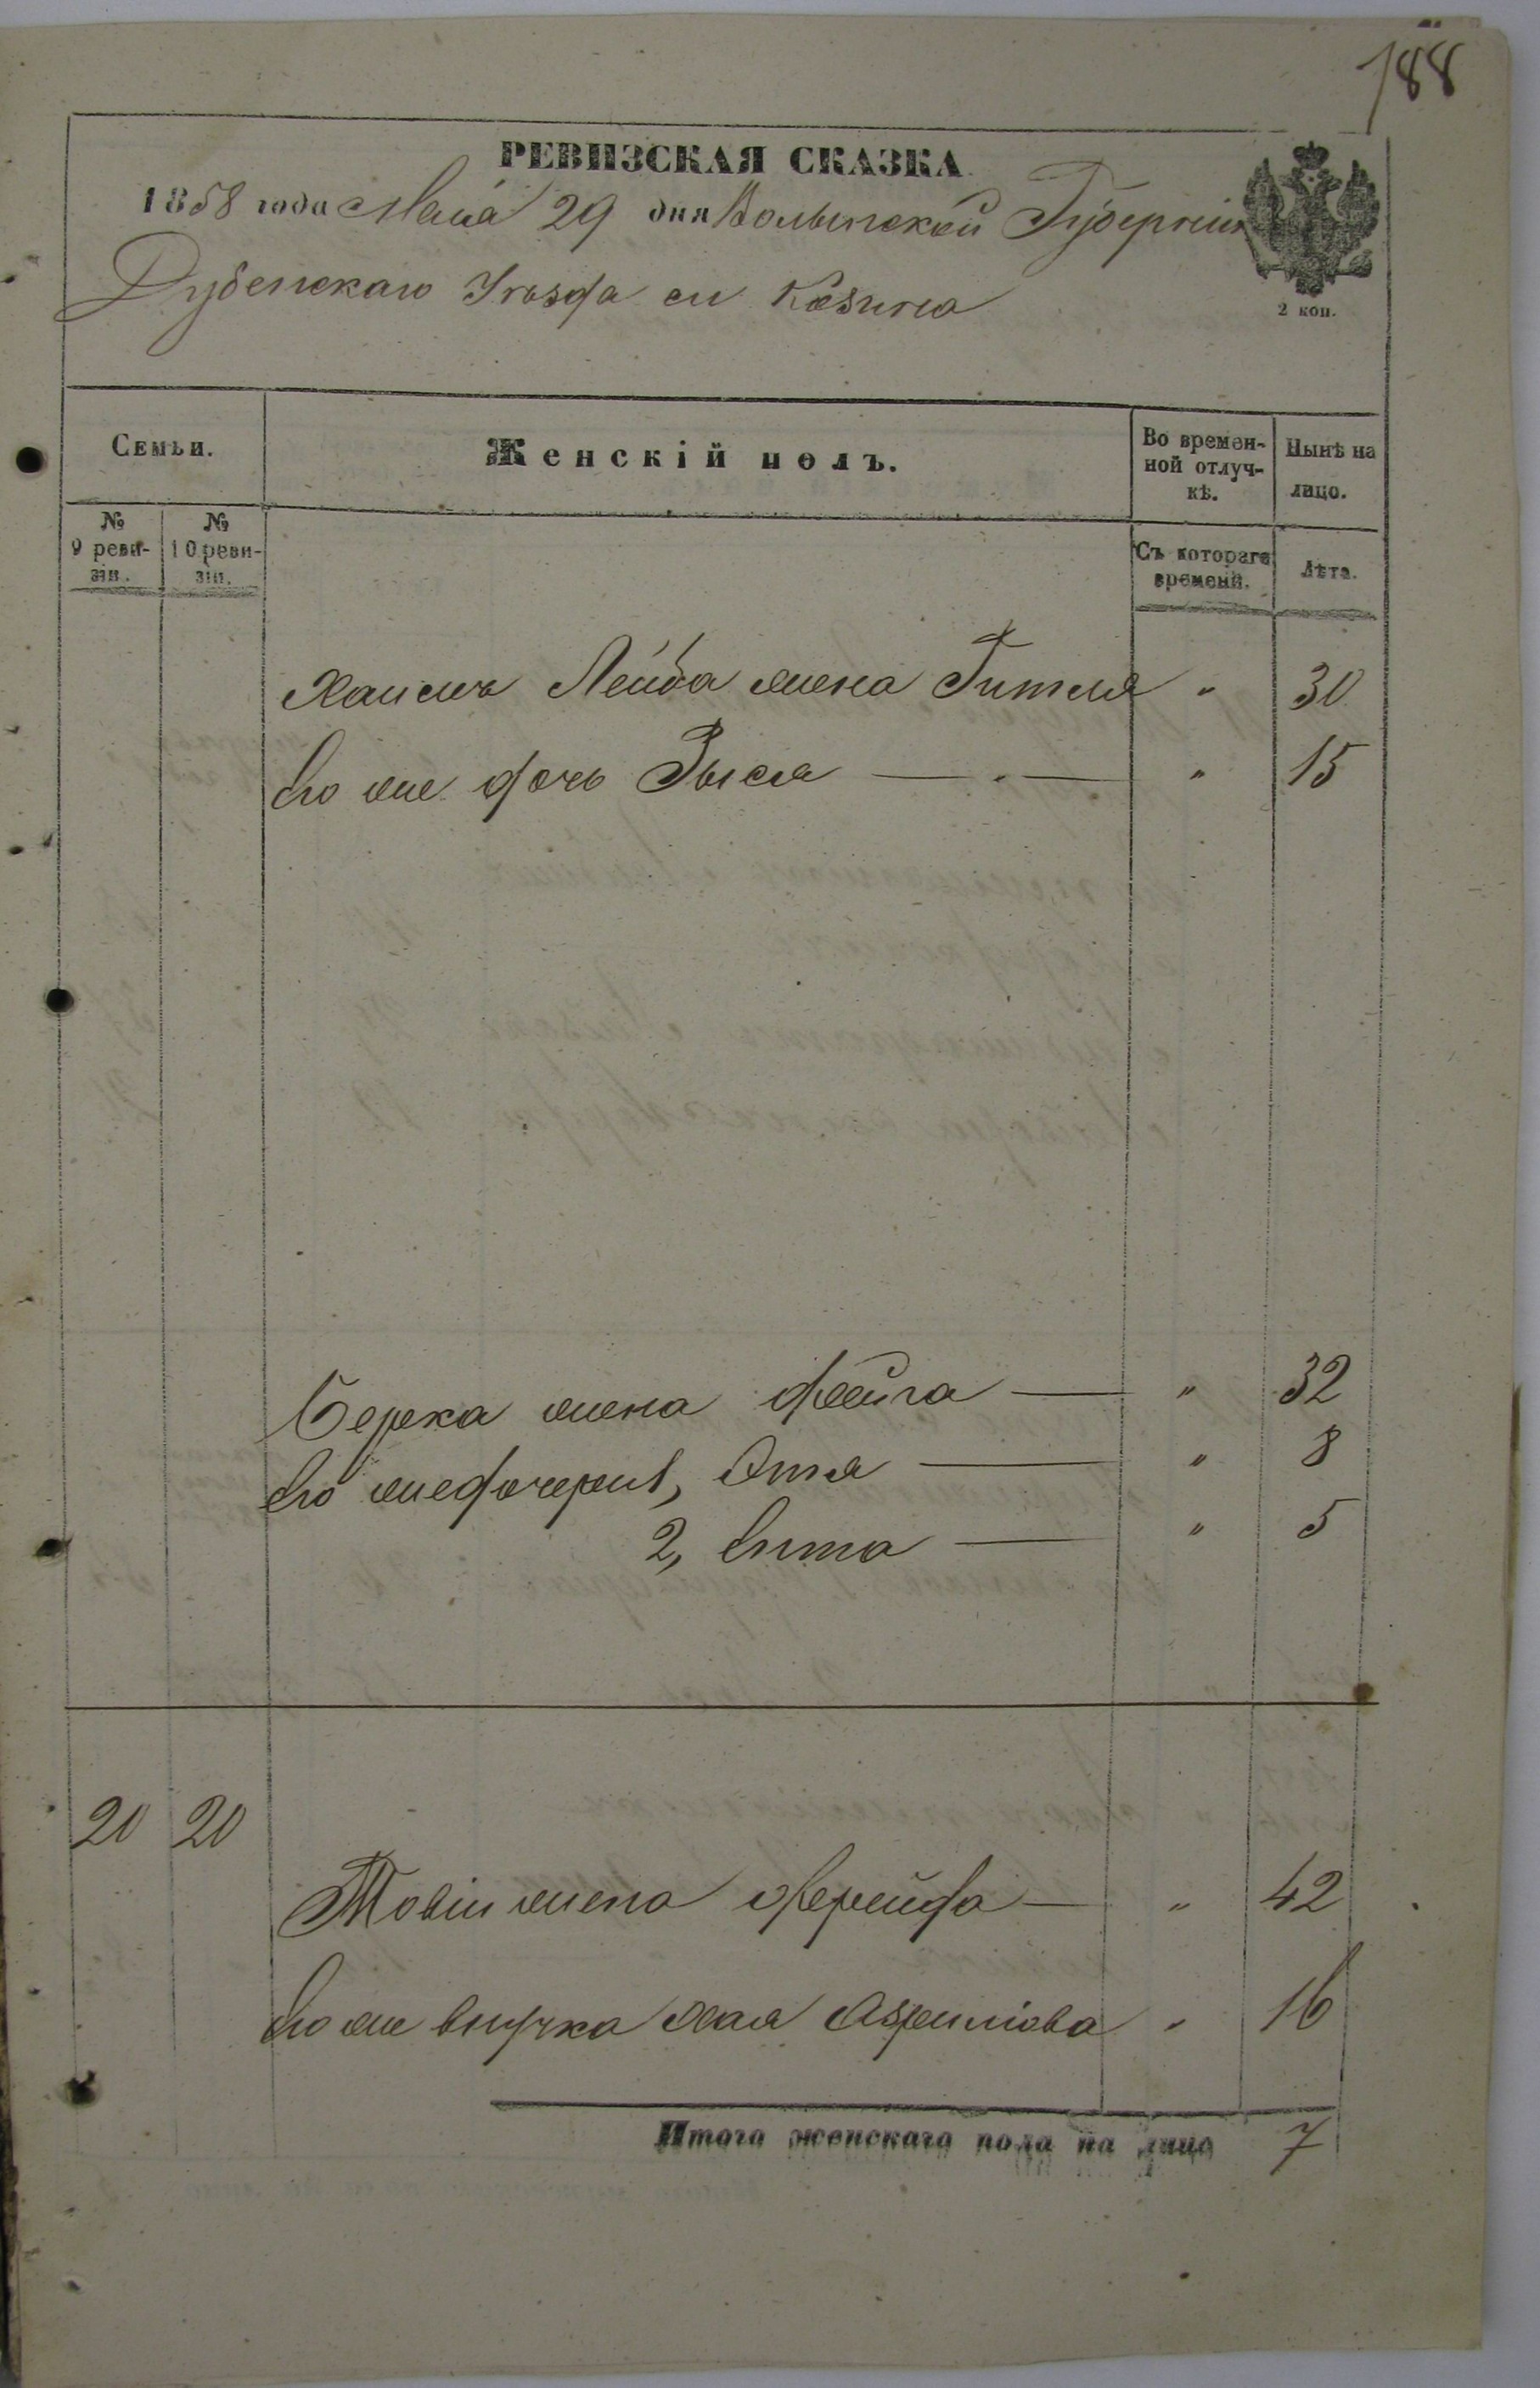 188
РЕВИЗСКАЯ СКАЗКА
1858 года Маіа 29 дня Волынской Губерніи
Дубенскаго Уѣзда м Козина
2 коп.
Семьи.
Женскій полъ.
Во времен-
ной отлуч-
кѣ.
Нынѣ на
лицо.
№
9 реви-
зіи.
№
10 реви-
зіи.
Съ котораго
времени.
Лѣта.
Хаимъ Лейба жена Гитля " 30
Его же дочь Зысля — " 15
Берка жена Фейга — " 32
Его же дочери 1, Этя — " 8
2, Ента — " 5
20 20
Товіи жена Фрейда — " 42
Его же внучка Хая Азрилиова " 16
Итого женскаго пола на лицо 7